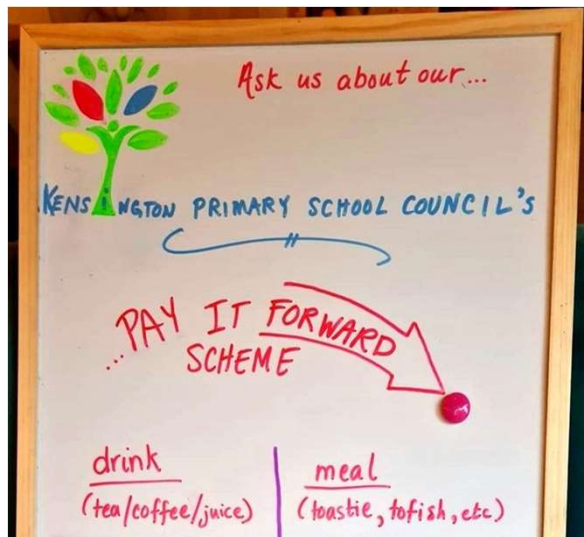 Ask us about our...
KENSiNGTON PRIMARY SCHOOL COUNCIL'S
...PAY IT FORWARD
SCHEME
drink
(tea/coffee/juice)
meal
(toastie, tofish, etc)